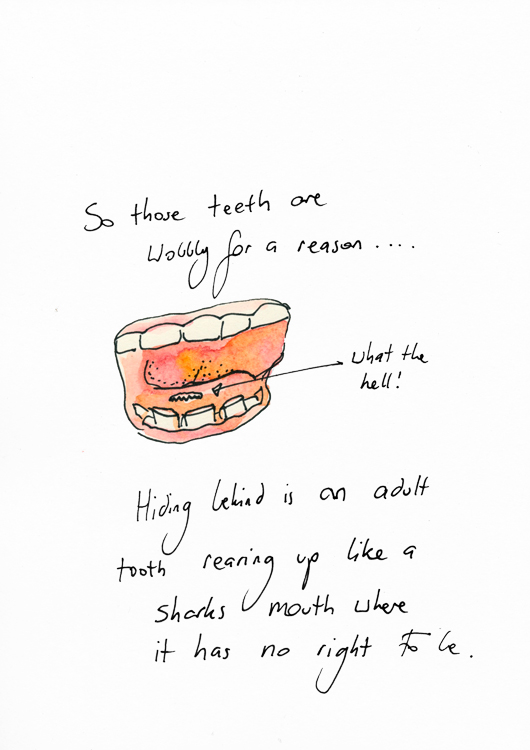 So those teeth are
wobbly for a reason ....
what the
hell!
Hiding behind is an adult
tooth rearing up like a
sharks mouth where
it has no right to be.